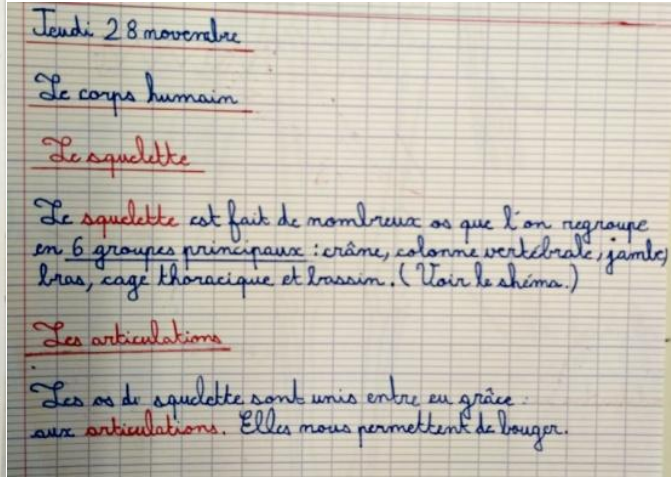 Jeudi 28 novembre
Le corps humain
Le squelette
Le squelette est fait de nombreux os que l'on regroupe
en 6 groupes principaux : crâne, colonne vertébrale, jambe,
bras, cage thoracique et bassin. (Voir le shéma.)
Les articulations
Les os du squelette sont unis entre eu grâce
aux articulations. Elles nous permettent de bouger.